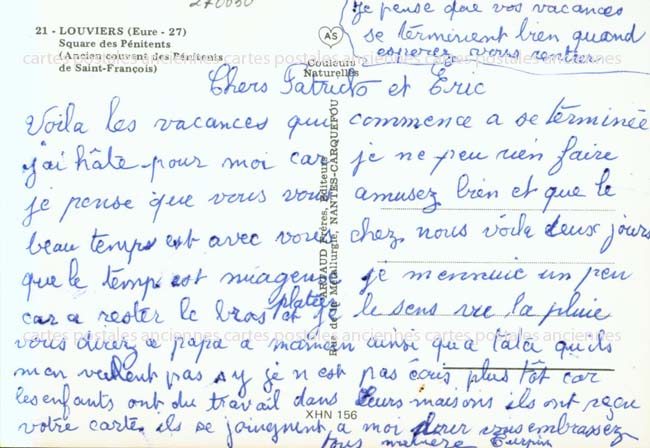 270050
21 - LOUVIERS (Eure - 27)
Square des Pénitents
(Ancien couvent des Pénitents
de Saint-François)
AS
Couleurs
Naturelles
je pense que vos vacances
se terminent bien quand
esperez vous rentrer
Chers Patrick et Eric
Voila les vacances qui commence a se terminée
j'ai hâte pour moi car je ne peu rien faire
je pense que vous vous amusez bien et que le
beau temps est avec vous chez nous voila deux jours
que le temps est nuageux je mennuie un peu
car a rester le bras platré et je le sens vu la pluie
vous direz a papa a maman ainsi qu'a tata quils
men veulent pas si je n'est pas écris plus tôt car
les enfants ont du travail dans leurs maisons ils ont reçu
votre carte ils se joingnent a moi pour vous embrassez
tous
GAUD Frères, Editeurs
Rue de la Métallurgie, NANTES-CARQUEFOU
XHN 156
cartes postales anciennes cartes postales anciennes cartes postales anciennes
cartes postales anciennes cartes postales anciennes cartes postales anciennes